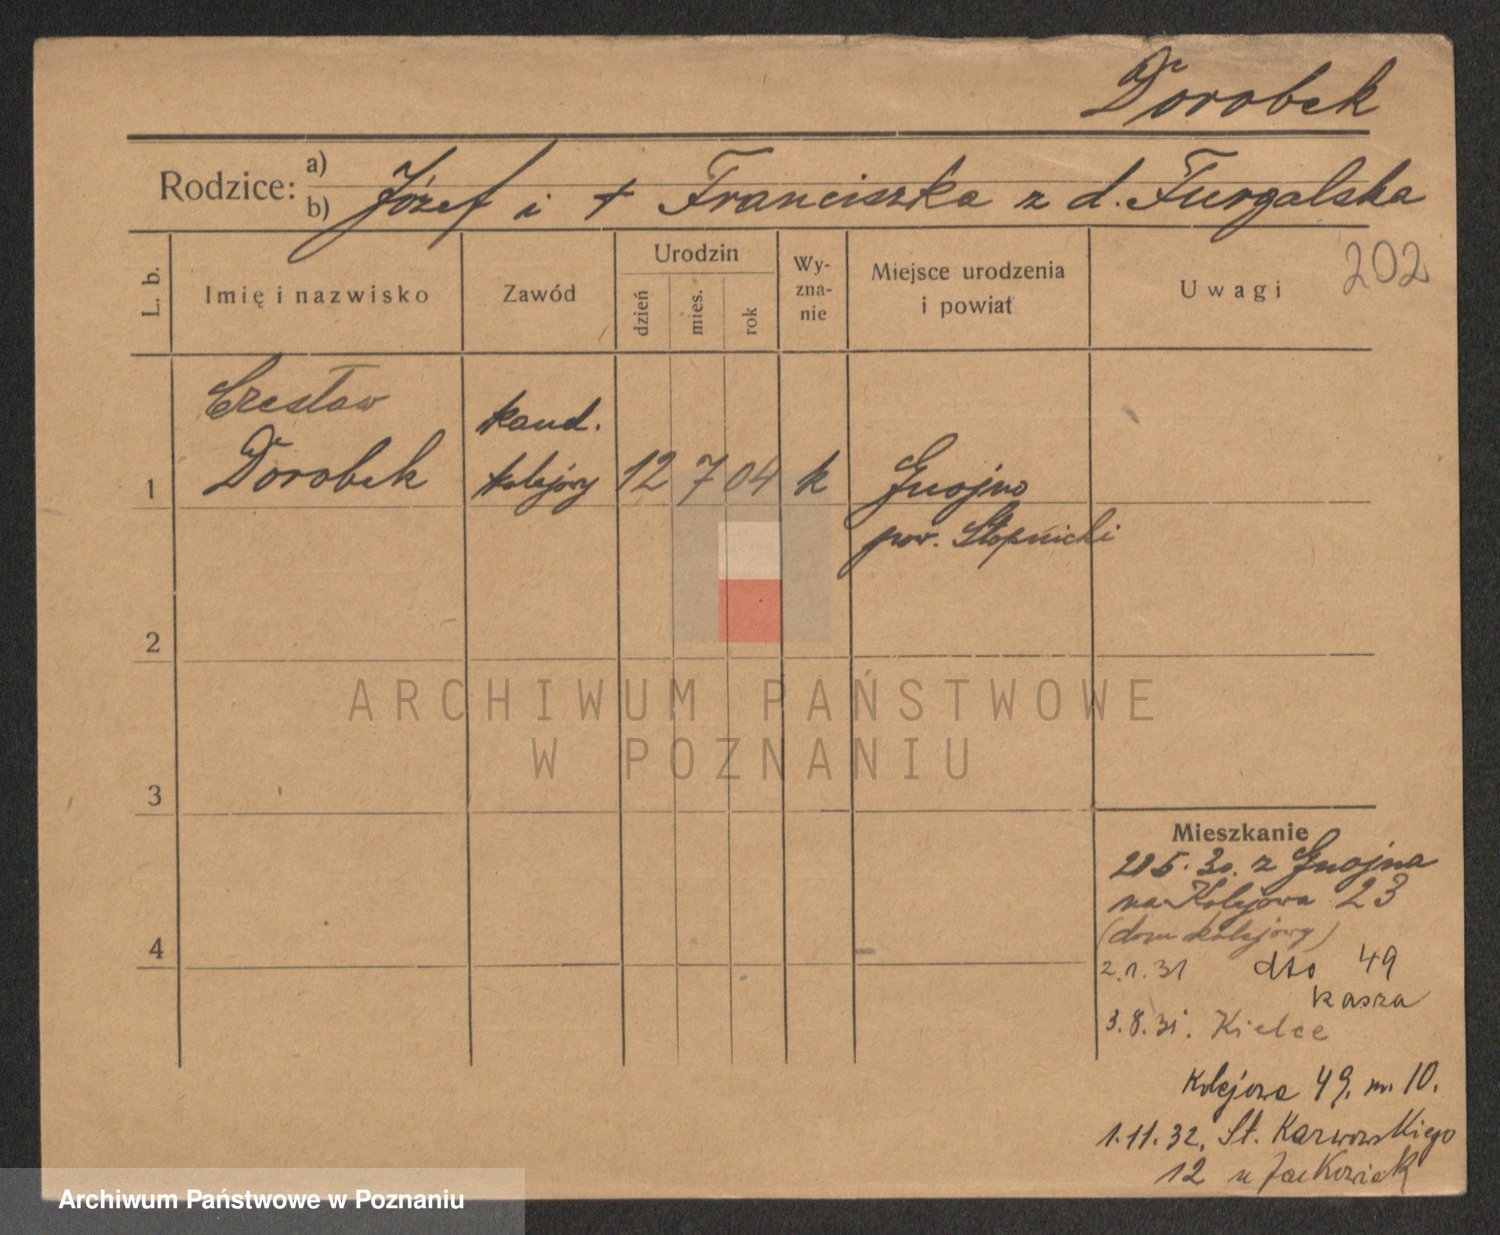 Dorobek
Rodzice: a) b) Józef i + Franciszka z d. Furgalska
L. b.
Imię i nazwisko
Zawód
Urodzin
dzień
mies.
rok
Wy-
zna-
nie
Miejsce urodzenia
i powiat
Uwagi
202
Czesław
Dorobek
kand.
kolejowy
1
12 7 04 k
Gnojno
pow. Stopnicki
2
3
4
ARCHIWUM PAŃSTWOWE
W POZNANIU
Mieszkanie
5. 30. z Gnojna
na Kolejowa 23
(dom kolejowy)
2.1.31 dto 49
kasza
3.8.31. Kielce
Kolejowa 49. m. 10.
1.11.32. St. Karwowskiego
12 u Jackowiak
Archiwum Państwowe w Poznaniu